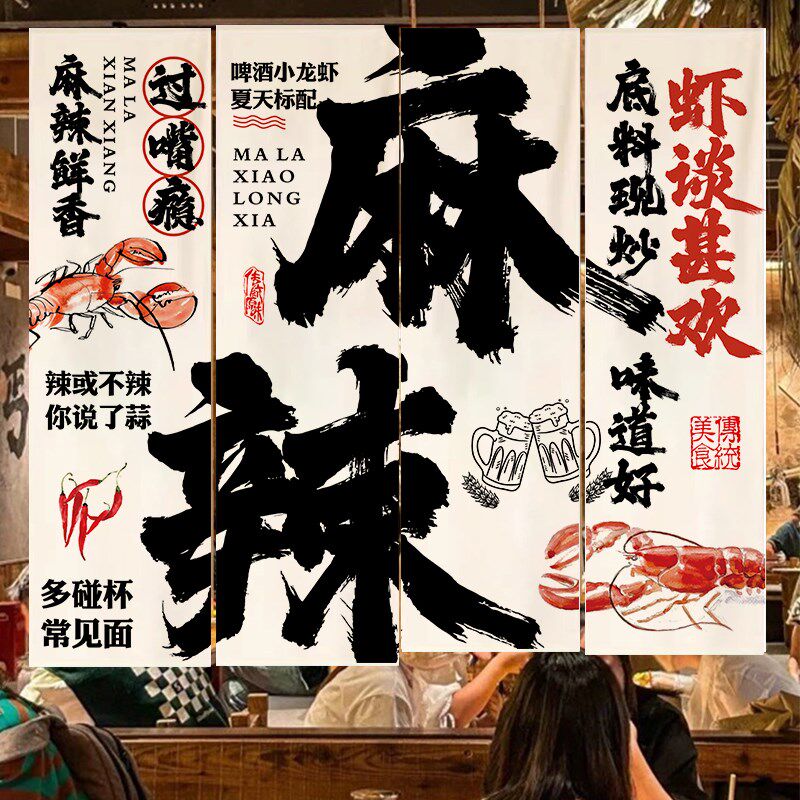 过嘴瘾
MA LA
XIAN XIANG
麻辣鲜香
辣或不辣
你说了蒜
多碰杯
常见面
啤酒小龙虾
夏天标配
MA LA
XIAO
LONG
XIA
麻辣
虾谈甚欢
底料现炒
味道好
傳統
美食